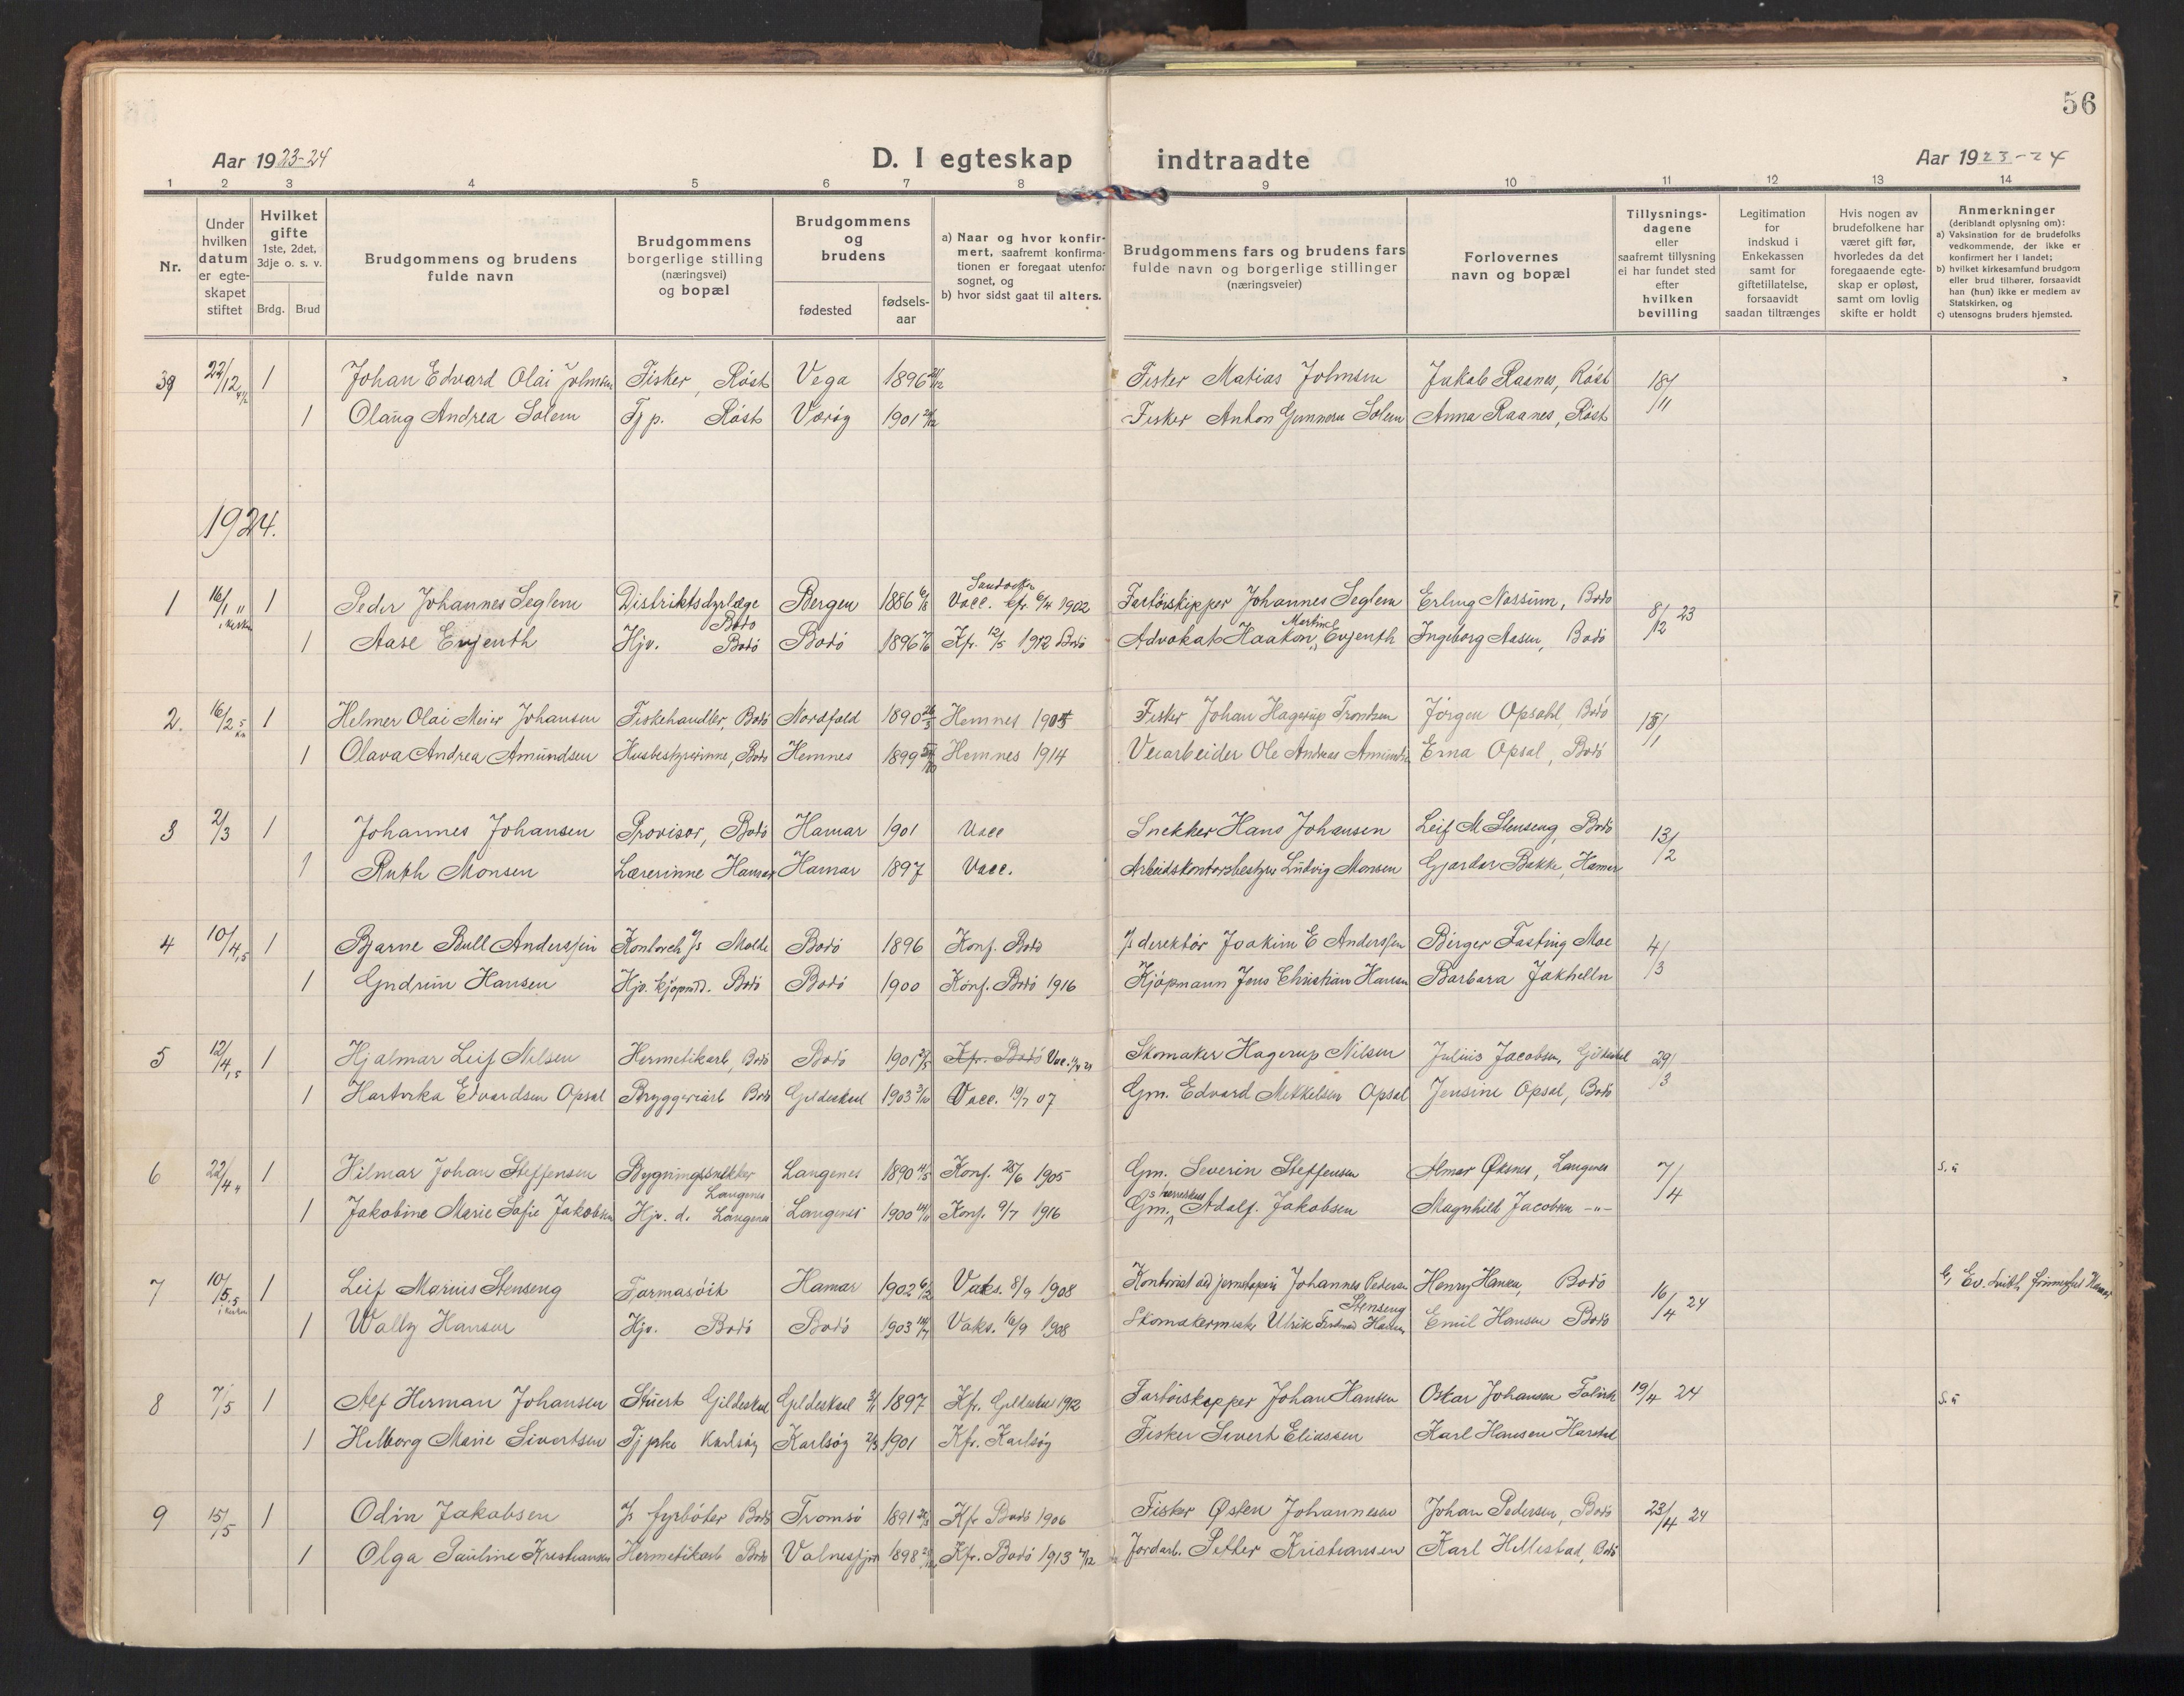 56
Aar 1923-24 D. I egteskap indtraadte Aar 1923-24
1 2 3 4 5 6 7 8 9 10 11 12 13 14
Nr.
Under hvilken datum er egteskapet stiftet
Hvilket gifte 1ste, 2det, 3dje o. s. v.
Brdg. Brud
Brudgommens og brudens fulde navn
Brudgommens borgerlige stilling (næringsvei) og bopæl
Brudgommens og brudens
fødested fødsels-aar
a) Naar og hvor konfirmert, saafremt konfirmationen er foregaat utenfor sognet, og
b) hvor sidst gaat til alters.
Brudgommens fars og brudens fars fulde navn og borgerlige stillinger (næringsveier)
Forlovernes navn og bopæl
Tillysnings-dagene eller saafremt tillysning ei har fundet sted efter hvilken bevilling
Legitimation for indskud i Enkekassen samt for giftetillatelse, forsaavidt saadan tiltrænges
Hvis nogen av brudefolkene har været gift før, hvorledes da det foregaaende egteskap er opløst, samt om lovlig skifte er holdt
Anmerkninger (deriblandt oplysning om):
a) Vaksination for de brudefolks vedkommende, der ikke er konfirmert her i landet;
b) hvilket kirkesamfund brudgom eller brud tilhører, forsaavidt han (hun) ikke er medlem av Statskirken, og
c) utensogns bruders hjemsted.
39 22/12 1 Johan Edvard Olai Johnsen Fisker, Røst Vega 1896 Fisker Matias Johnsen Jakob Raanes, Röst 18/11
1 Olaug Andrea Solem Tj p. Røst Værøy 1901 Fisker Anton Solem Anna Raanes, Röst
1924.
1 16/1 1 Peder Johannes Seglem Distriktsdyrlæge Bodo Bergen 1886 Vacc. 6/4 1902 Fartöiskipper Johannes Seglem Erling Bodo 8/12 23
1 Aase Evjenth Hjv. Bodö Bodö 1896 Kfr. 12/5 1912 Bodö Advokat Haakon Martinel Evjenth Ingeborg Aasen, Bodö
2. 16/2 1 Helmer Olai Meier Johansen Fiskehandler, Bodö Nordfold 1890 Hemnes 1905 Fisker Johan Hagerup Trondsen Jörgen Opsahl, Bodö 13/1
1 Olava Andrea Amundsen Husbestyrerinne, Bodö Hemnes 1899 Hemnes 1914 Veiarbeider Ole Andreas Amundsen Erna Opsal, Bodö
3 2/3 1 Johannes Johansen Provisor, Bodö Hamar 1901 Vacc Snekker Hans Johansen Leif M Stenseng, Bodö 13/2
1 Ruth Monsen Lærerinne Hamar Hamar 1897 Vacc. Arbeidskontorsbestyrer Ludvig Monsen Gjardar Bakke, Hamar
4 10/4 1 Bjarne Bull Anderssen Kontorch Molde Bodö 1896 Konf. Bodö direktör Joakim E Anderssen Birger Fasting Moe 4/3
1 Gudrun Hansen Hjv. Bodö Bodö 1900 Konf. Bodö 1916 Kjöpmann Jens Christian Hansen Barbara Jakhelln
5 12/4 1 Hjalmar Leif Nilsen Hermetikarb, Bodö Bodö 1901 Kfr. Bodö Vac. Skomaker Hagerup Nilsen Julius Jacobsen, 29/3
1 Hartvika Edvardsen Opsal Bryggeriarb Bodö Gildeskaal 1903 Vacc. 19/7 07 Gm. Edvard Mikkelsen Opsal Jensine Opsal, Bodö
6 22/4 1 Hilmar Johan Steffensen Bygningssnekker Langenes Langenes 1890 Konf. 25/6 1905 Gm. Severin Steffensen Almar Øksnes, Langenes 7/4 s. ü
1 Jakobine Marie Sofie Jakobsen Hjv. d. Langenes Langenes 1900 Konf. 9/7 1916 Gm. Adolf. Jakobsen Magnhild Jacobsen -"-
7 10/5 1 Leif Marius Stenseng Farmasöit Hamar 1902 Vaks. 8/9 1908 Johannes Pedersen Stenseng Henry Hansen, Bodö 16/4 24
1 Wally Hansen Hjv. Bodö Bodö 1903 Vaks. 16/9 1908 Skomakermester Ulrik Hansen Emil Hansen Bodö
8 7/5 1 Alf Herman Johansen Stuert Gildeskaal Gildeskaal 1897 Kfr. 1912 Fartöiskipper Johan Hansen Oskar Johansen 19/4 24 s. ü
1 Helborg Marie Sivertsen Tjpke Karlsöy Karlsöy 1901 Kfr. Karlsöy Fisker Sivert Eliassen Karl Hansen Harstad
9 15/5 1 Odin Jakobsen fyrböter Bodö Tromsö 1891 Kfr Bodö 1906 Fisker Østen Johannesen Johan Pedersen, Bodö 23/4 24
1 Olga Pauline Kristiansen Hermetikarb Bodö Valnesfjord 1898 Kfr. Bodö 1913 Jordarb. Petter Kristiansen Karl Hillestad, Bodö